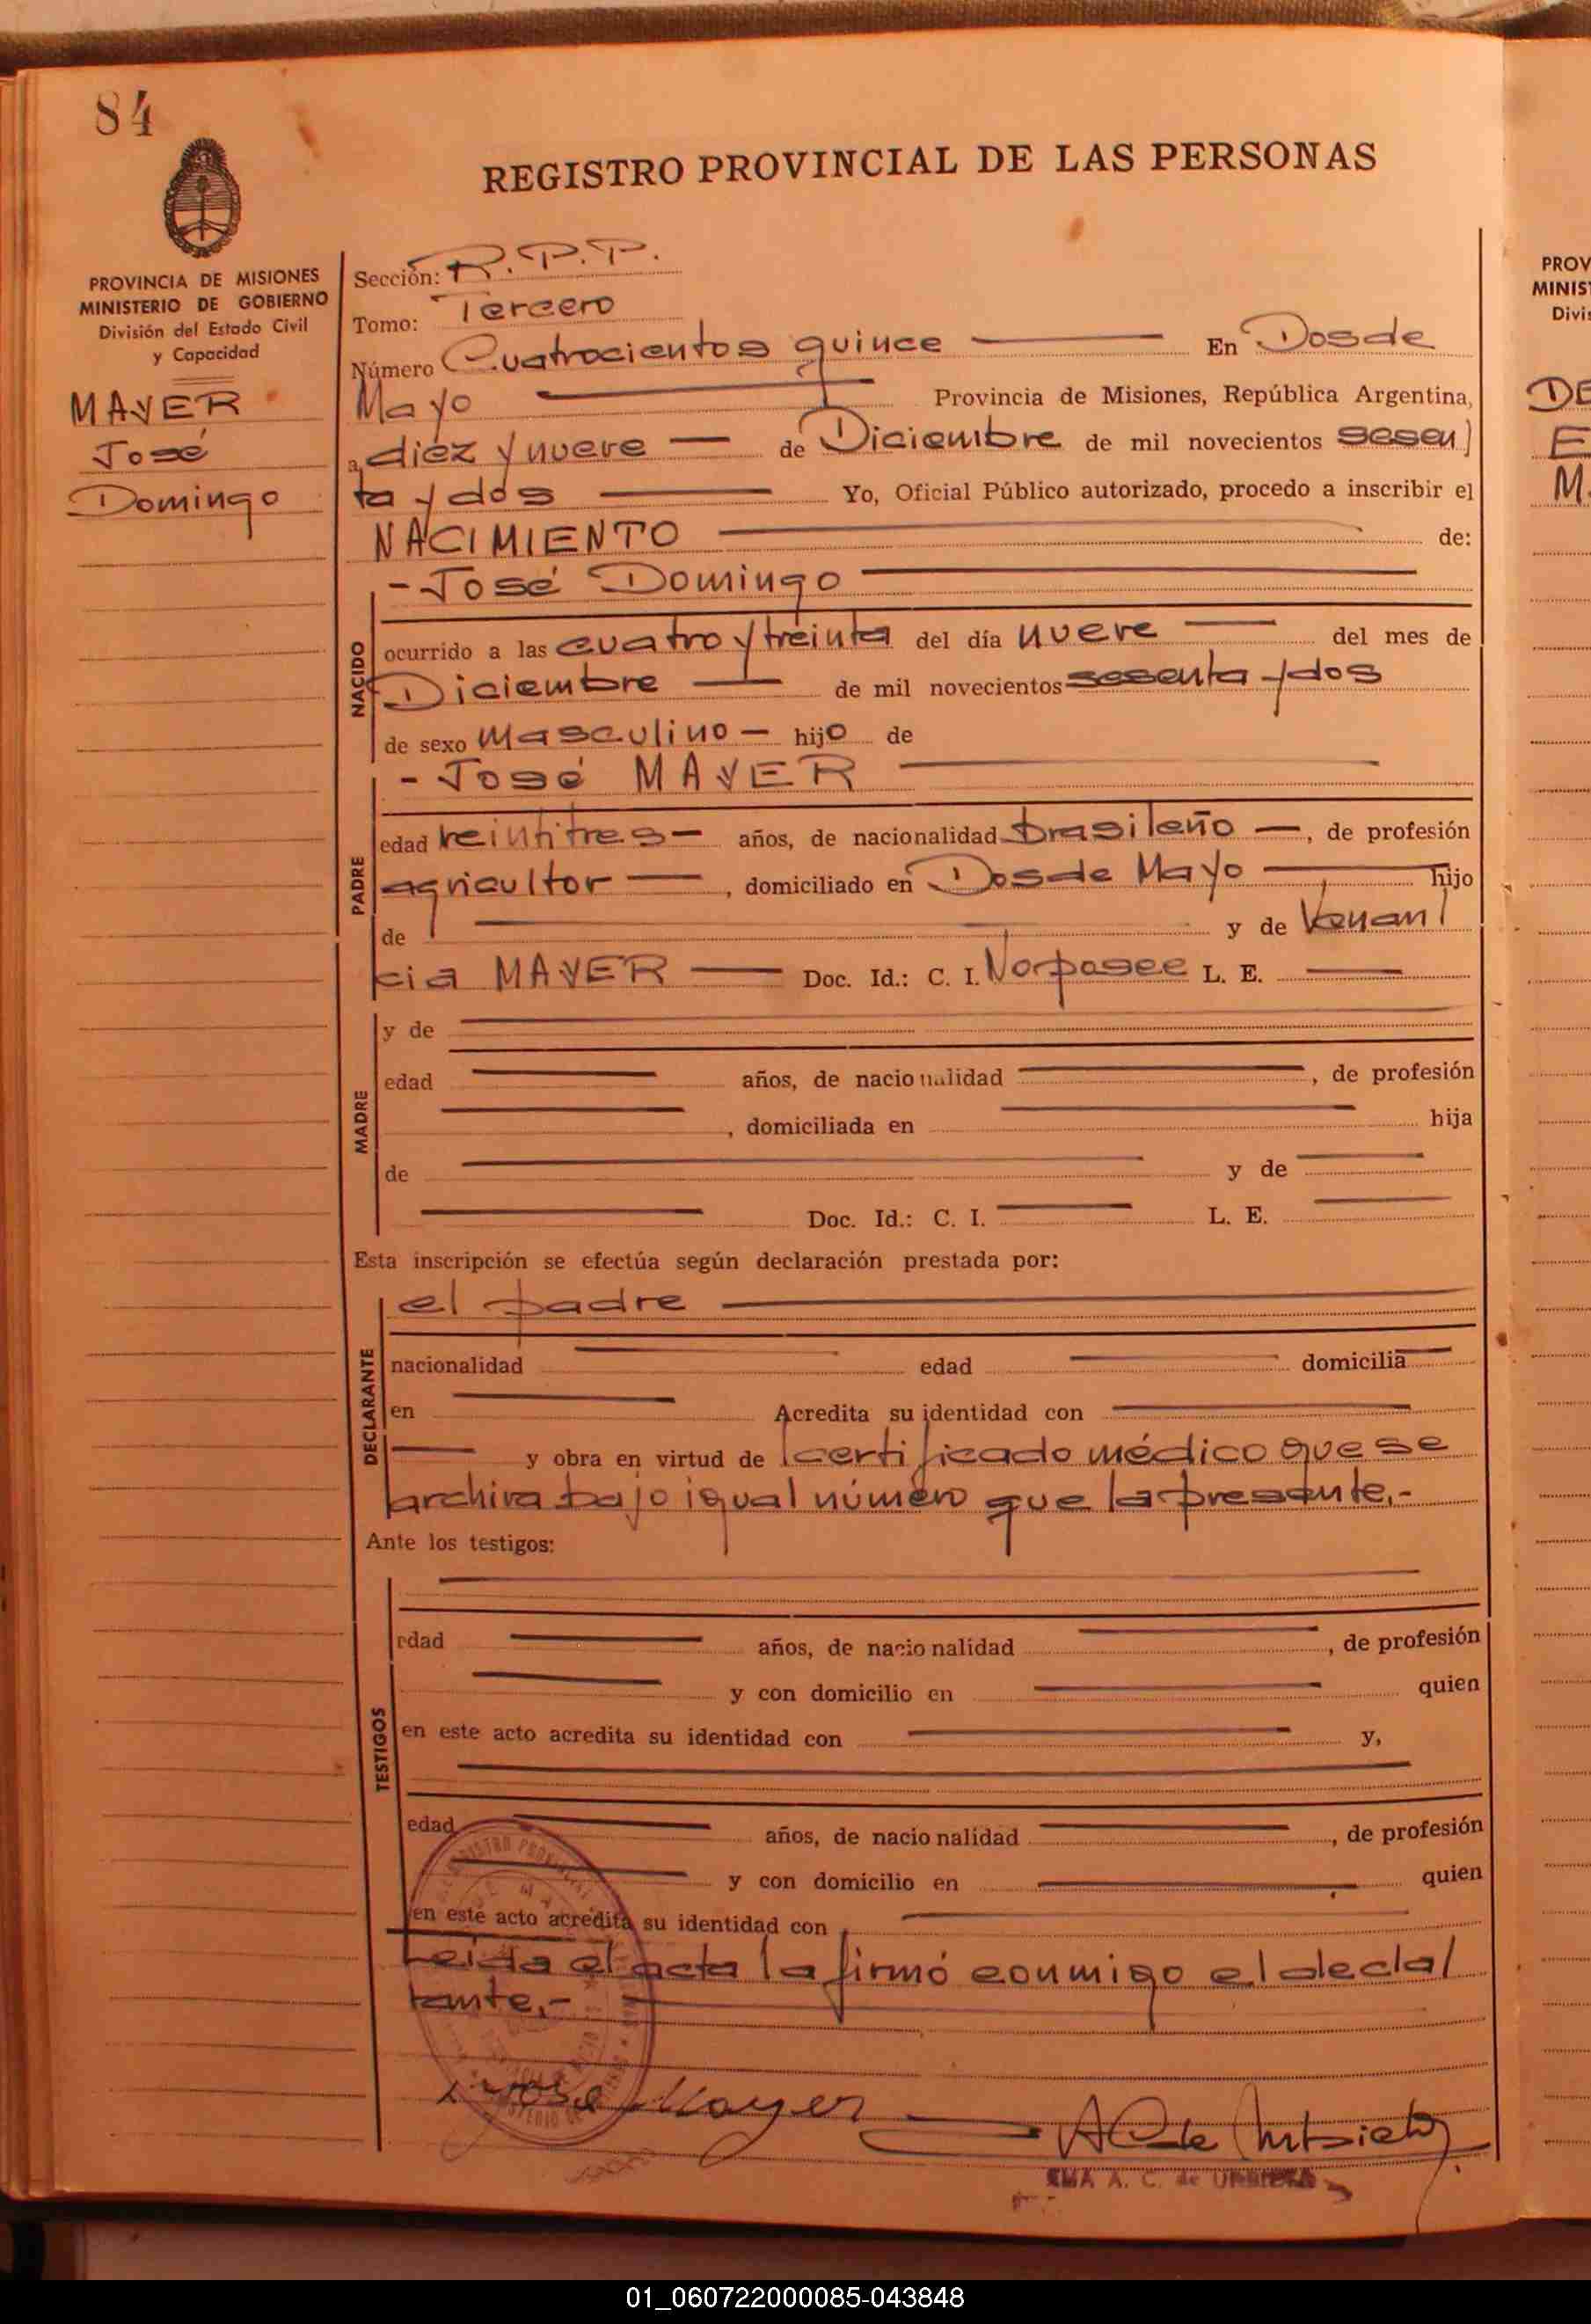 84
REGISTRO PROVINCIAL DE LAS PERSONAS
PROVINCIA DE MISIONES
MINISTERIO DE GOBIERNO
División del Estado Civil
y Capacidad
MAYER
José
Domingo
Sección: R.P.P.
Tomo: Tercero
Número Cuatrocientos quince En Dos de
Mayo Provincia de Misiones, República Argentina,
a diez y nueve de Diciembre de mil novecientos sesen
ta y dos Yo, Oficial Público autorizado, procedo a inscribir el
NACIMIENTO de:
- José Domingo
NACIDO
ocurrido a las cuatro y treinta del día nueve del mes de
Diciembre de mil novecientos sesenta y dos
de sexo masculino - hijo de
- José MAYER
PADRE
edad veintitres - años, de nacionalidad brasileño -, de profesión
agricultor -, domiciliado en Dos de Mayo hijo
de y de Venan
cia MAYER Doc. Id.: C. I. No posee L. E.
MADRE
y de
edad años, de nacionalidad , de profesión
, domiciliada en hija
de y de
Doc. Id.: C. I. L. E.
Esta inscripción se efectúa según declaración prestada por:
DECLARANTE
el padre
nacionalidad edad domicilia
en Acredita su identidad con
y obra en virtud de certificado médico que se
archiva bajo igual número que la presente.-
Ante los testigos:
TESTIGOS
edad años, de nacionalidad , de profesión
y con domicilio en quien
en este acto acredita su identidad con y,
edad años, de nacionalidad , de profesión
y con domicilio en quien
en este acto acredita su identidad con
Leida el acta la firmó conmigo el decla
rante.-
José Mayer
A. C. de
PROV
MINIS
Divi
DE
E
M
01_060722000085-043848